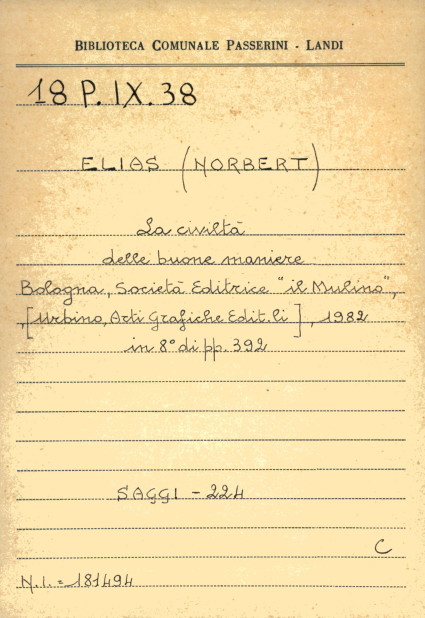 BIBLIOTECA COMUNALE PASSERINI - LANDI
18 P. IX. 38
ELIAS (NORBERT)
La civiltà
delle buone maniere
Bologna, Società Editrice "il Mulino",
,[Urbino, Arti Grafiche Edit.li], 1982
in 8° di pp. 392
SAGGI - 224
C
N.I. = 181494